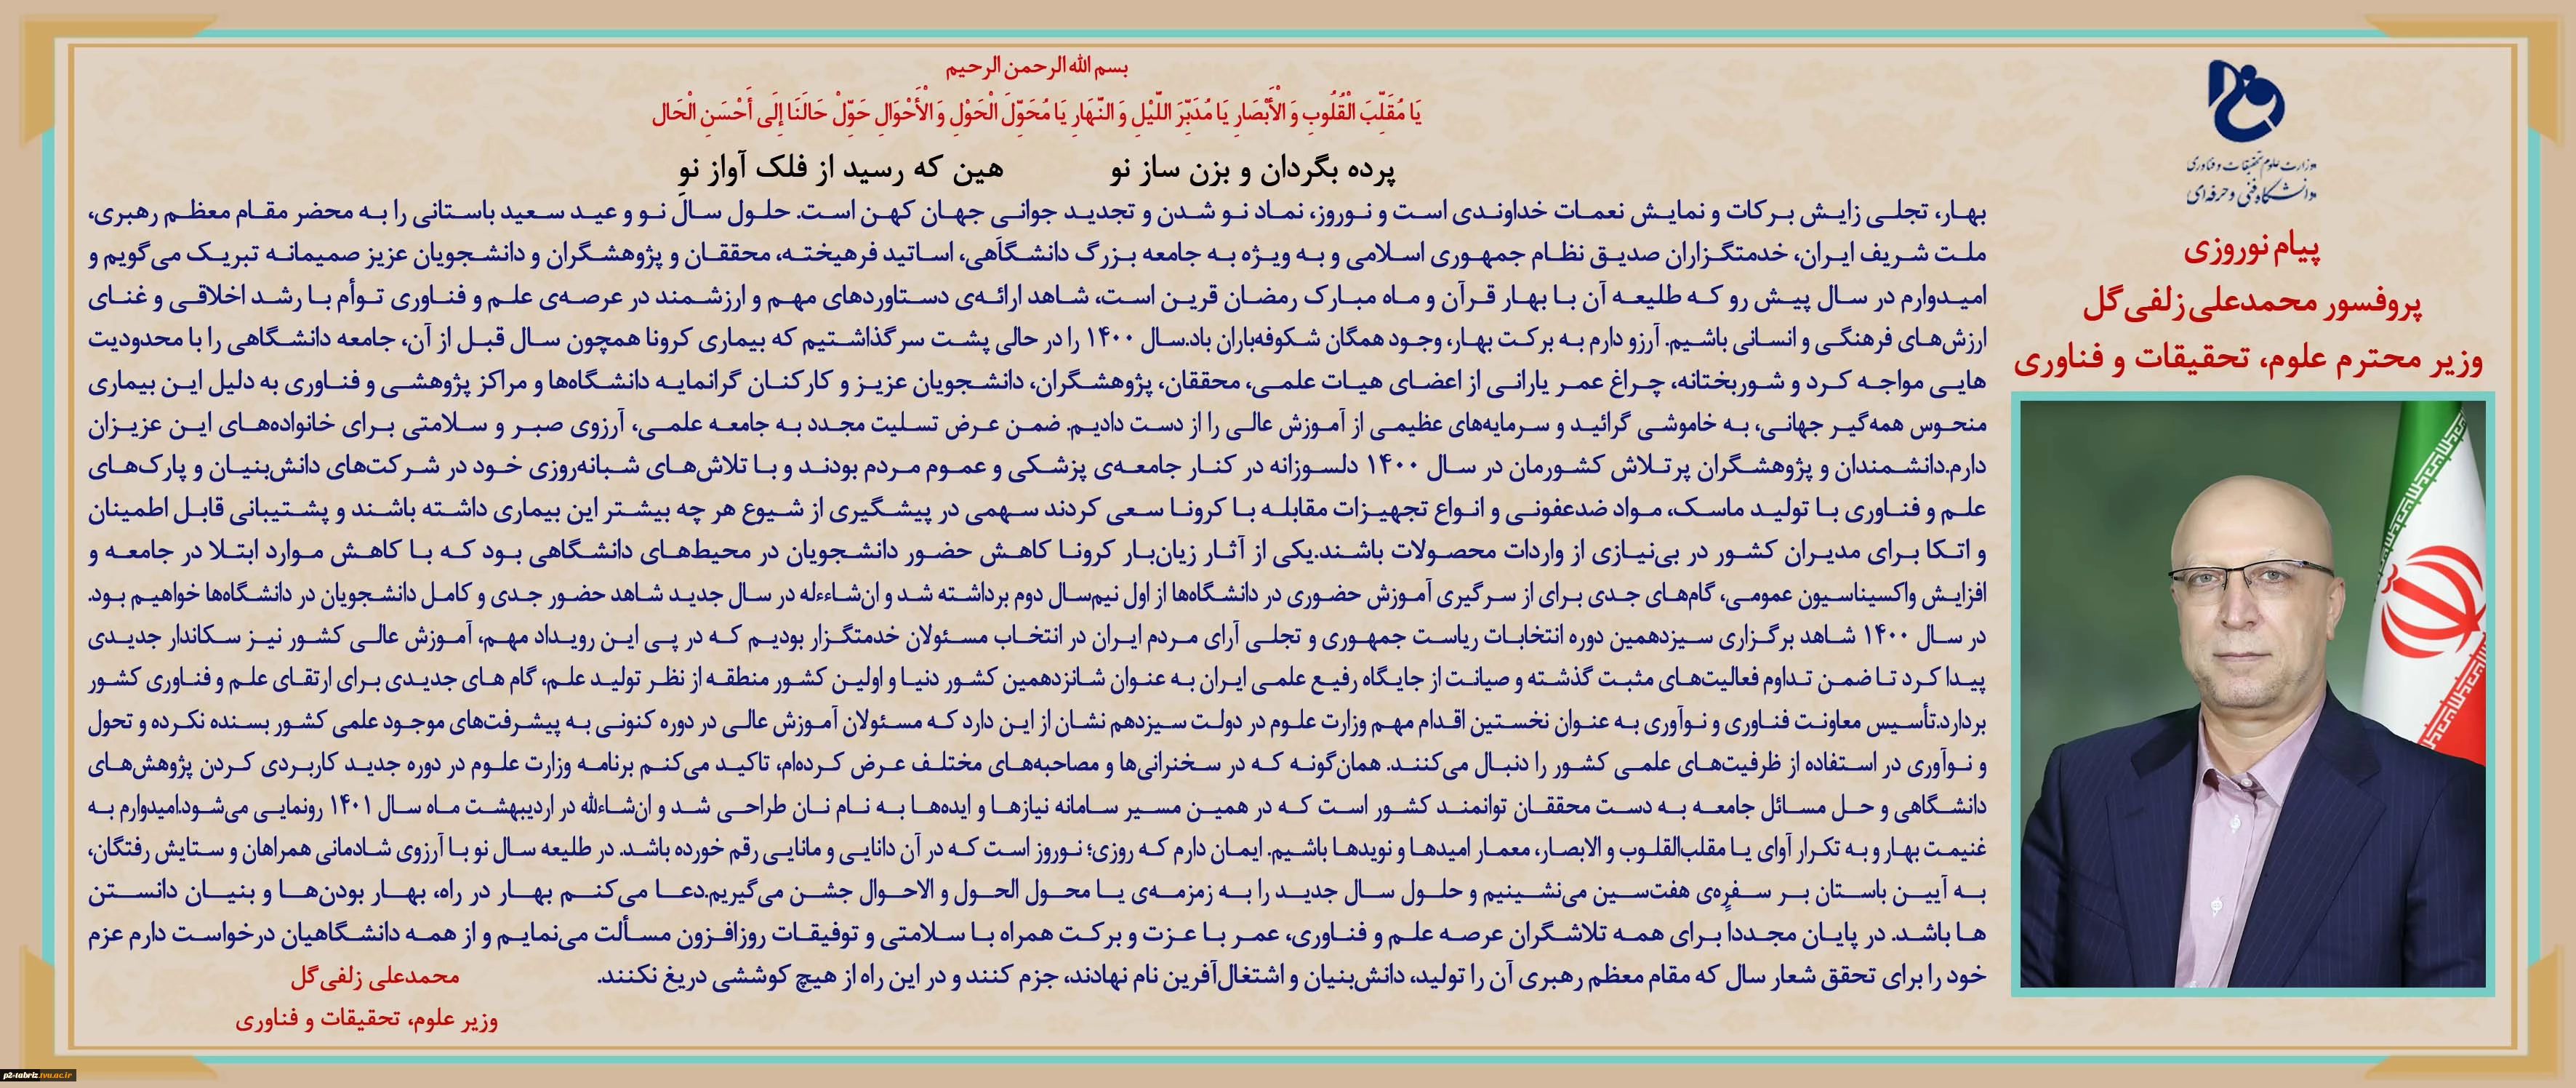 وزارت علوم تحقیقات و فناوری
دانشگاه فنی و حرفه‌ای
پیام نوروزی
پروفسور محمدعلی زلفی گل
وزیر محترم علوم، تحقیقات و فناوری
بسم الله الرحمن الرحیم
یَا مُقَلِّبَ الْقُلُوبِ وَ الْأَبْصَارِ یَا مُدَبِّرَ اللَّیْلِ وَ النَّهَارِ یَا مُحَوِّلَ الْحَوْلِ وَ الْأَحْوَالِ حَوِّلْ حَالَنَا إِلَى أَحْسَنِ الْحَال
پرده بگردان و بزن ساز نو هین که رسید از فلک آواز نو
بهار، تجلی زایش برکات و نمایش نعمات خداوندی است و نوروز، نماد نو شدن و تجدید جوانی جهان کهن است. حلول سال نو و عید سعید باستانی را به محضر مقام معظم رهبری،
ملت شریف ایران، خدمتگزاران صدیق نظام جمهوری اسلامی و به ویژه به جامعه بزرگ دانشگاهی، اساتید فرهیخته، محققان و پژوهشگران و دانشجویان عزیز صمیمانه تبریک می‌گویم و
امیدوارم در سال پیش رو که طلیعه آن با بهار قرآن و ماه مبارک رمضان قرین است، شاهد ارائه‌ی دستاوردهای مهم و ارزشمند در عرصه‌ی علم و فناوری توأم با رشد اخلاقی و غنای
ارزش‌های فرهنگی و انسانی باشیم. آرزو دارم به برکت بهار، وجود همگان شکوفه‌باران باد.سال ۱۴۰۰ را در حالی پشت سر گذاشتیم که بیماری کرونا همچون سال قبل از آن، جامعه دانشگاهی را با محدودیت
هایی مواجه کرد و شوربختانه، چراغ عمر یارانی از اعضای هیات علمی، محققان، پژوهشگران، دانشجویان عزیز و کارکنان گرانمایه دانشگاه‌ها و مراکز پژوهشی و فناوری به دلیل این بیماری
منحوس همه‌گیر جهانی، به خاموشی گرائید و سرمایه‌های عظیمی از آموزش عالی را از دست دادیم. ضمن عرض تسلیت مجدد به جامعه علمی، آرزوی صبر و سلامتی برای خانواده‌های این عزیزان
دارم.دانشمندان و پژوهشگران پرتلاش کشورمان در سال ۱۴۰۰ دلسوزانه در کنار جامعه‌ی پزشکی و عموم مردم بودند و با تلاش‌های شبانه‌روزی خود در شرکت‌های دانش‌بنیان و پارک‌های
علم و فناوری با تولید ماسک، مواد ضدعفونی و انواع تجهیزات مقابله با کرونا سعی کردند سهمی در پیشگیری از شیوع هر چه بیشتر این بیماری داشته باشند و پشتیبانی قابل اطمینان
و اتکا برای مدیران کشور در بی‌نیازی از واردات محصولات باشند.یکی از آثار زیان‌بار کرونا کاهش حضور دانشجویان در محیط‌های دانشگاهی بود که با کاهش موارد ابتلا در جامعه و
افزایش واکسیناسیون عمومی، گام‌های جدی برای از سرگیری آموزش حضوری در دانشگاه‌ها از اول نیم‌سال دوم برداشته شد و ان‌شاءءله در سال جدید شاهد حضور جدی و کامل دانشجویان در دانشگاه‌ها خواهیم بود.
در سال ۱۴۰۰ شاهد برگزاری سیزدهمین دوره انتخابات ریاست جمهوری و تجلی آرای مردم ایران در انتخاب مسئولان خدمتگزار بودیم که در پی این رویداد مهم، آموزش عالی کشور نیز سکاندار جدیدی
پیدا کرد تا ضمن تداوم فعالیت‌های مثبت گذشته و صیانت از جایگاه رفیع علمی ایران به عنوان شانزدهمین کشور دنیا و اولین کشور منطقه از نظر تولید علم، گام های جدیدی برای ارتقای علم و فناوری کشور
بردارد.تأسیس معاونت فناوری و نوآوری به عنوان نخستین اقدام مهم وزارت علوم در دولت سیزدهم نشان از این دارد که مسئولان آموزش عالی در دوره کنونی به پیشرفت‌های موجود علمی کشور بسنده نکرده و تحول
و نوآوری در استفاده از ظرفیت‌های علمی کشور را دنبال می‌کنند. همان‌گونه که در سخنرانی‌ها و مصاحبه‌های مختلف عرض کرده‌ام، تاکید می‌کنم برنامه وزارت علوم در دوره جدید کاربردی کردن پژوهش‌های
دانشگاهی و حل مسائل جامعه به دست محققان توانمند کشور است که در همین مسیر سامانه نیازها و ایده‌ها به نام نان طراحی شد و ان‌شاءالله در اردیبهشت ماه سال ۱۴۰۱ رونمایی می‌شود.امیدوارم به
غنیمت بهار و به تکرار آوای یا مقلب‌القلوب و الابصار، معمار امیدها و نویدها باشیم. ایمان دارم که روزی؛ نوروز است که در آن دانایی و مانایی رقم خورده باشد. در طلیعه سال نو با آرزوی شادمانی همراهان و ستایش رفتگان،
به آیین باستان بر سفره‌ی هفت‌سین می‌نشینیم و حلول سال جدید را به زمزمه‌ی یا محول الحول و الاحوال جشن می‌گیریم.دعا می‌کنم بهار در راه، بهار بودن‌ها و بنیان دانستن
ها باشد. در پایان مجددا برای همه تلاشگران عرصه علم و فناوری، عمر با عزت و برکت همراه با سلامتی و توفیقات روزافزون مسألت می‌نمایم و از همه دانشگاهیان درخواست دارم عزم
خود را برای تحقق شعار سال که مقام معظم رهبری آن را تولید، دانش‌بنیان و اشتغال‌آفرین نام نهادند، جزم کنند و در این راه از هیچ کوششی دریغ نکنند.
محمدعلی زلفی گل
وزیر علوم، تحقیقات و فناوری
p2-tabriz.tvu.ac.ir